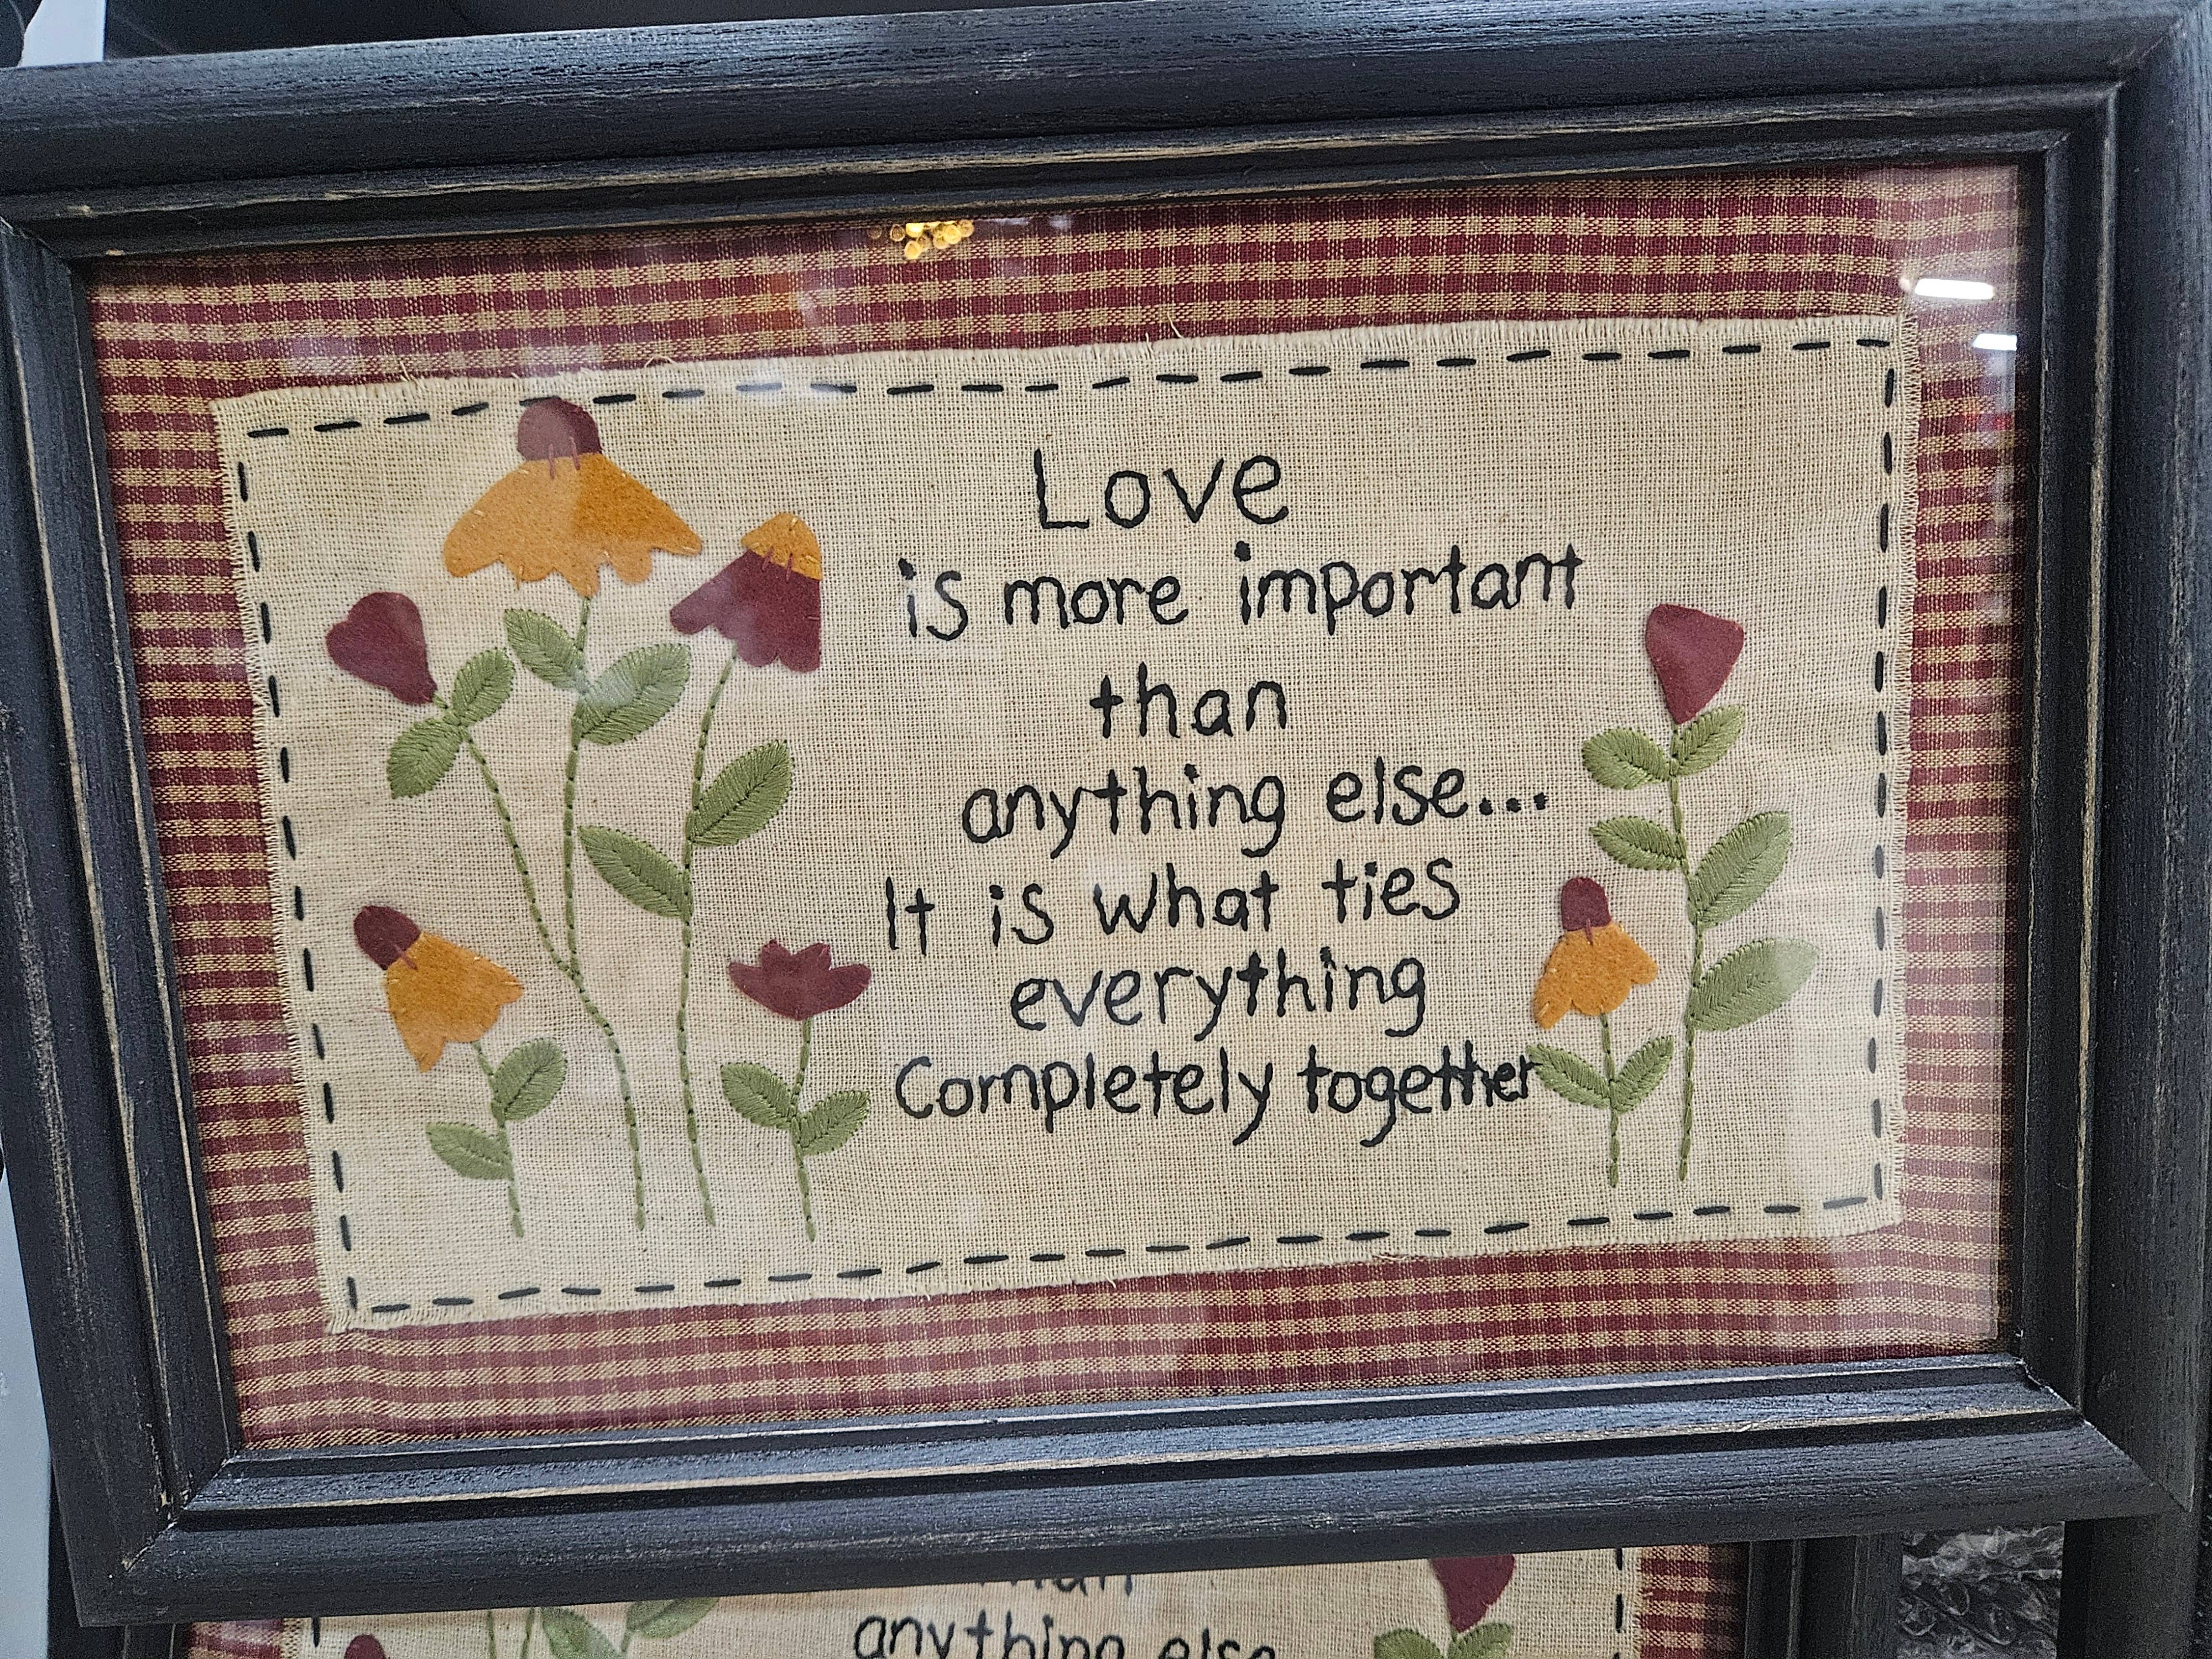 Love
is more important
than
anything else...
It is what ties
everything
Completely together
than
anything else